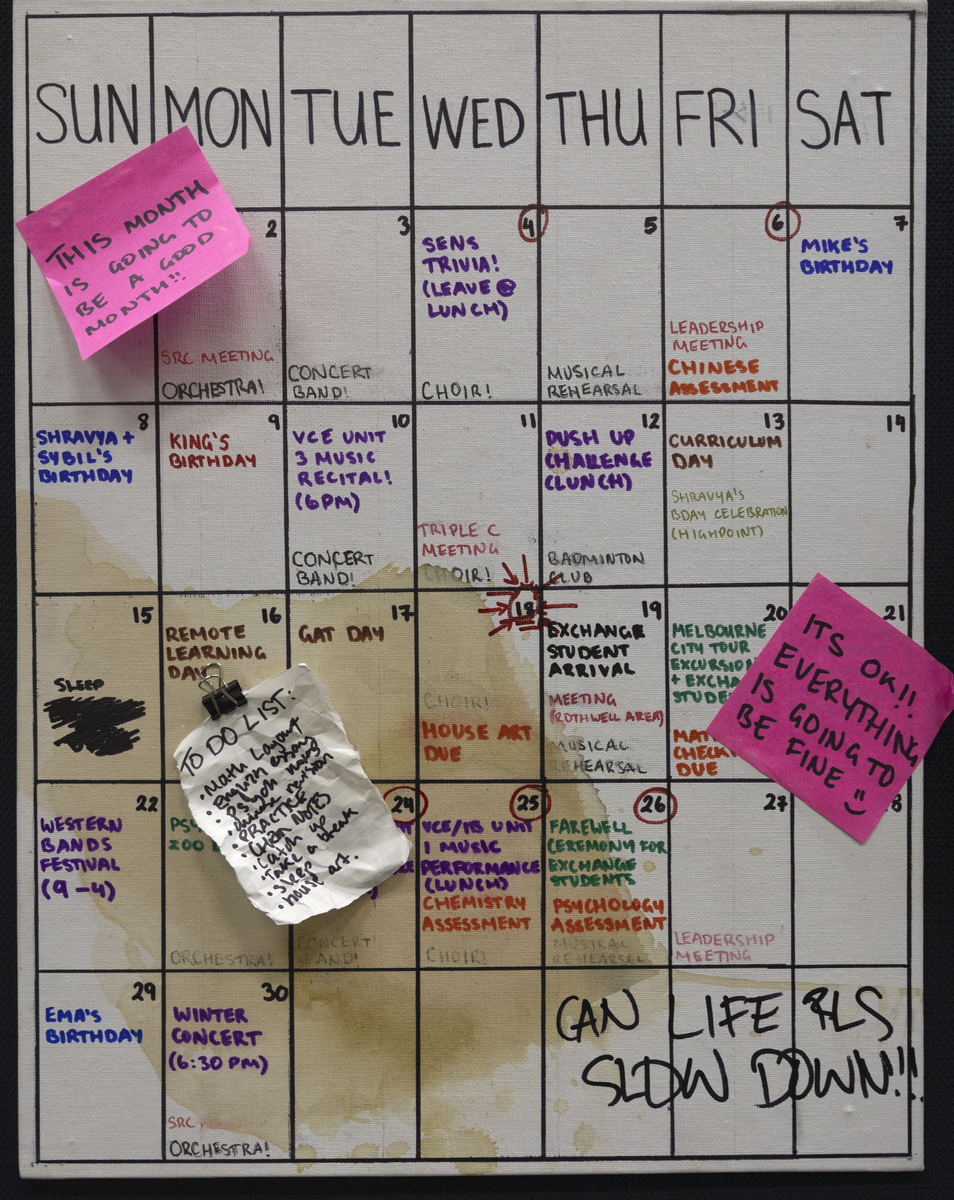 SUN MON TUE WED THU FRI SAT
THIS MONTH
IS GOING TO
BE A GOOD
MONTH!!
2
SRC MEETING
ORCHESTRA!
3
CONCERT
BAND!
4
SENS
TRIVIA!
(LEAVE @
LUNCH)
CHOIR!
5
MUSICAL
REHEARSAL
6
LEADERSHIP
MEETING
CHINESE
ASSESSMENT
7
MIKE'S
BIRTHDAY
8
SHRAVYA +
SYBIL'S
BIRTHDAY
9
KING'S
BIRTHDAY
10
VCE UNIT
3 MUSIC
RECITAL!
(6PM)
CONCERT
BAND!
11
TRIPLE C
MEETING
CHOIR!
12
PUSH UP
CHALLENGE
(LUNCH)
BADMINTON
CLUB
13
CURRICULUM
DAY
SHRAVYA'S
BDAY CELEBRATION
(HIGHPOINT)
14
15
SLEEP
16
REMOTE
LEARNING
DAY
17
GAT DAY
18
CHOIR!
HOUSE ART
DUE
19
EXCHANGE
STUDENT
ARRIVAL
MEETING
(ROTHWELL AREA)
MUSICAL
REHEARSAL
20
MELBOURNE
CITY TOUR
EXCURSION
+ EXCHA
STUDE
MAT
CHECK
DUE
21
ITS OK!!
EVERYTHING
IS GOING TO
BE FINE
TO DO LIST:
• Math Layout
• PRACTICE
• CHEM NOTES
• Catch up
• Take a break
• Sleep
• house art.
22
WESTERN
BANDS
FESTIVAL
(9-4)
PSY
ZOO
ORCHESTRA!
24
CONCERT
BAND!
25
VCE/IB UNIT
1 MUSIC
PERFORMANCE
(LUNCH)
CHEMISTRY
ASSESSMENT
CHOIR!
26
FAREWELL
CEREMONY FOR
EXCHANGE
STUDENTS
PSYCHOLOGY
ASSESSMENT
MUSICAL
REHEARSAL
27
LEADERSHIP
MEETING
8
29
EMA'S
BIRTHDAY
30
WINTER
CONCERT
(6:30 PM)
SRC
ORCHESTRA!
CAN LIFE PLS
SLOW DOWN!!!